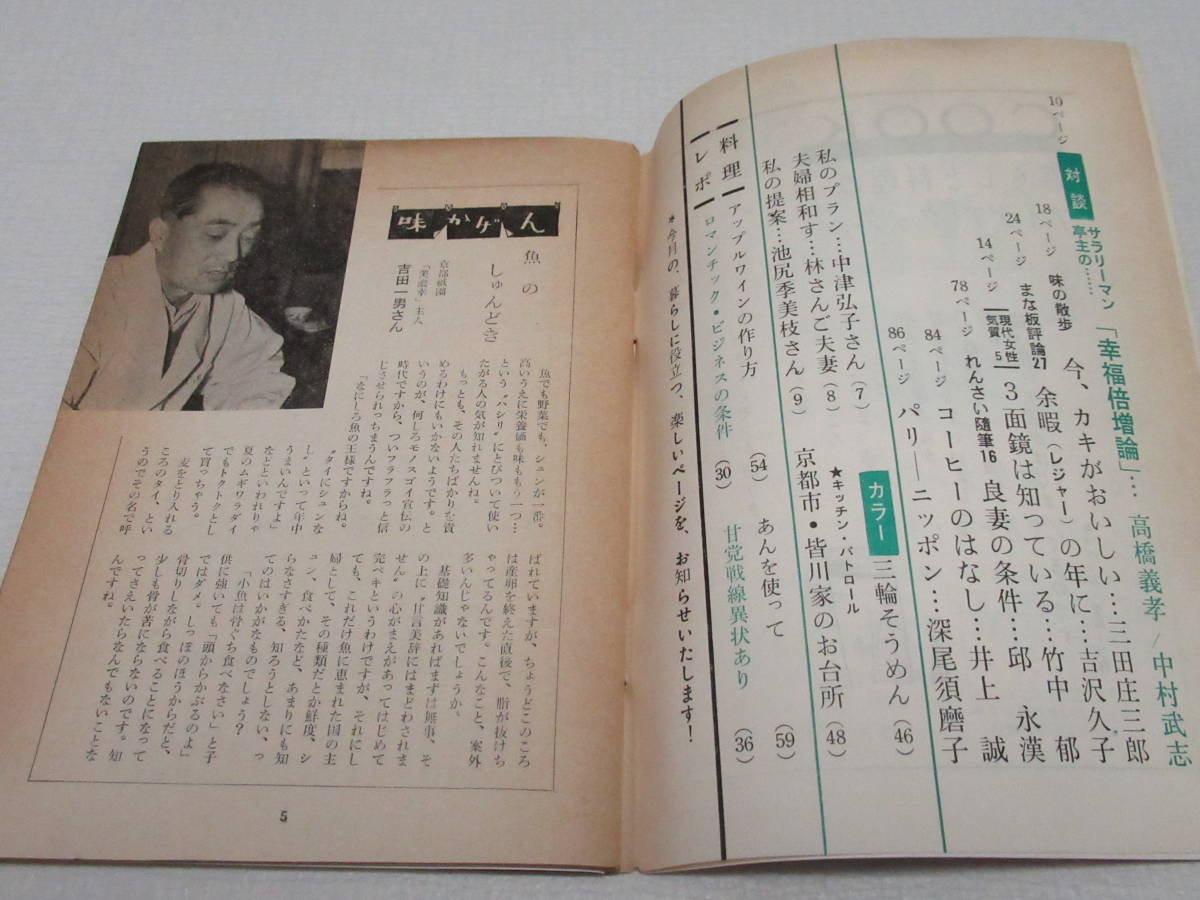 10ページ 対談 サラリーマン亭主の…… 「幸福倍増論」… 高橋義孝/中村武志
18ページ 味の散歩 今、カキがおいしい…三田庄三郎
24ページ まな板評論27 余暇(レジャー)の年に…吉沢久子
14ページ 現代女性気質5 3面鏡は知っている…竹中 郁
78ページ れんさい随筆16 良妻の条件…邱 永漢
84ページ コーヒーのはなし…井上 誠
86ページ パリ―ニッポン…深尾須磨子
カラー 三輪そうめん (46)
★キッチン・パトロール
京都市・皆川家のお台所 (48)
私のプラン…中津弘子さん (7)
夫婦相和す…林さんご夫妻 (8)
私の提案…池尻季美枝さん (9)
料理 アップルワインの作り方 (54) あんを使って (59)
レポ ロマンチック・ビジネスの条件 (30) 甘党戦線異状あり (36)
今月の、暮らしに役立つ、楽しいページを、お知らせいたします!
味かげん
魚の
しゅんどき
京都祇園
主人
吉田一男さん
魚でも野菜でも、シュンが一番。
高いうえに栄養価も味ももう一つ…
という〝バシリ〟にとびついて使い
たがる人の気が知れませんね。
もっとも、その人たちばかりを責
めるわけにもいかないようです。と
いうのが、何しろモノスゴイ宣伝の
時代ですから、ついフラフラっと信
じさせられっちまうんですね。
「なにしろ魚の王様ですからね。
〝タイにシュンな
し〟といって年中
うまいんですよ」
などといわれりゃ
夏のムギワラダイ
でもトクトクとし
て買っちゃう。
麦をとり入れる
ころのタイ、とい
うのでその名で呼
ばれていますが、ちょうどこのころ
は産卵を終えた直後で、脂が抜けち
ゃってるんです。こんなこと、案外
多いんじゃないでしょうか。
基礎知識があればまずは無事、そ
の上に〝甘言美辞にはまどわされま
せん〟の心がまえがあってはじめて
完ペキというわけですが、それにし
ても、これだけ魚に恵まれた国の主
婦として、その種類だとか鮮度、シ
ュン、食べかたなど、あまりにも知
らなさすぎる、知ろうとしない、っ
てのはいかがなものでしょう?
「小魚は骨ぐち食べなさい」と子
供に強いても「頭からかぶるのよ」
ではダメ。しっぽのほうからだと、
骨切りしながら食べることになって
少しも骨が苦にならないのです。知
ってさえいたらなんでもないことな
んですね。
5